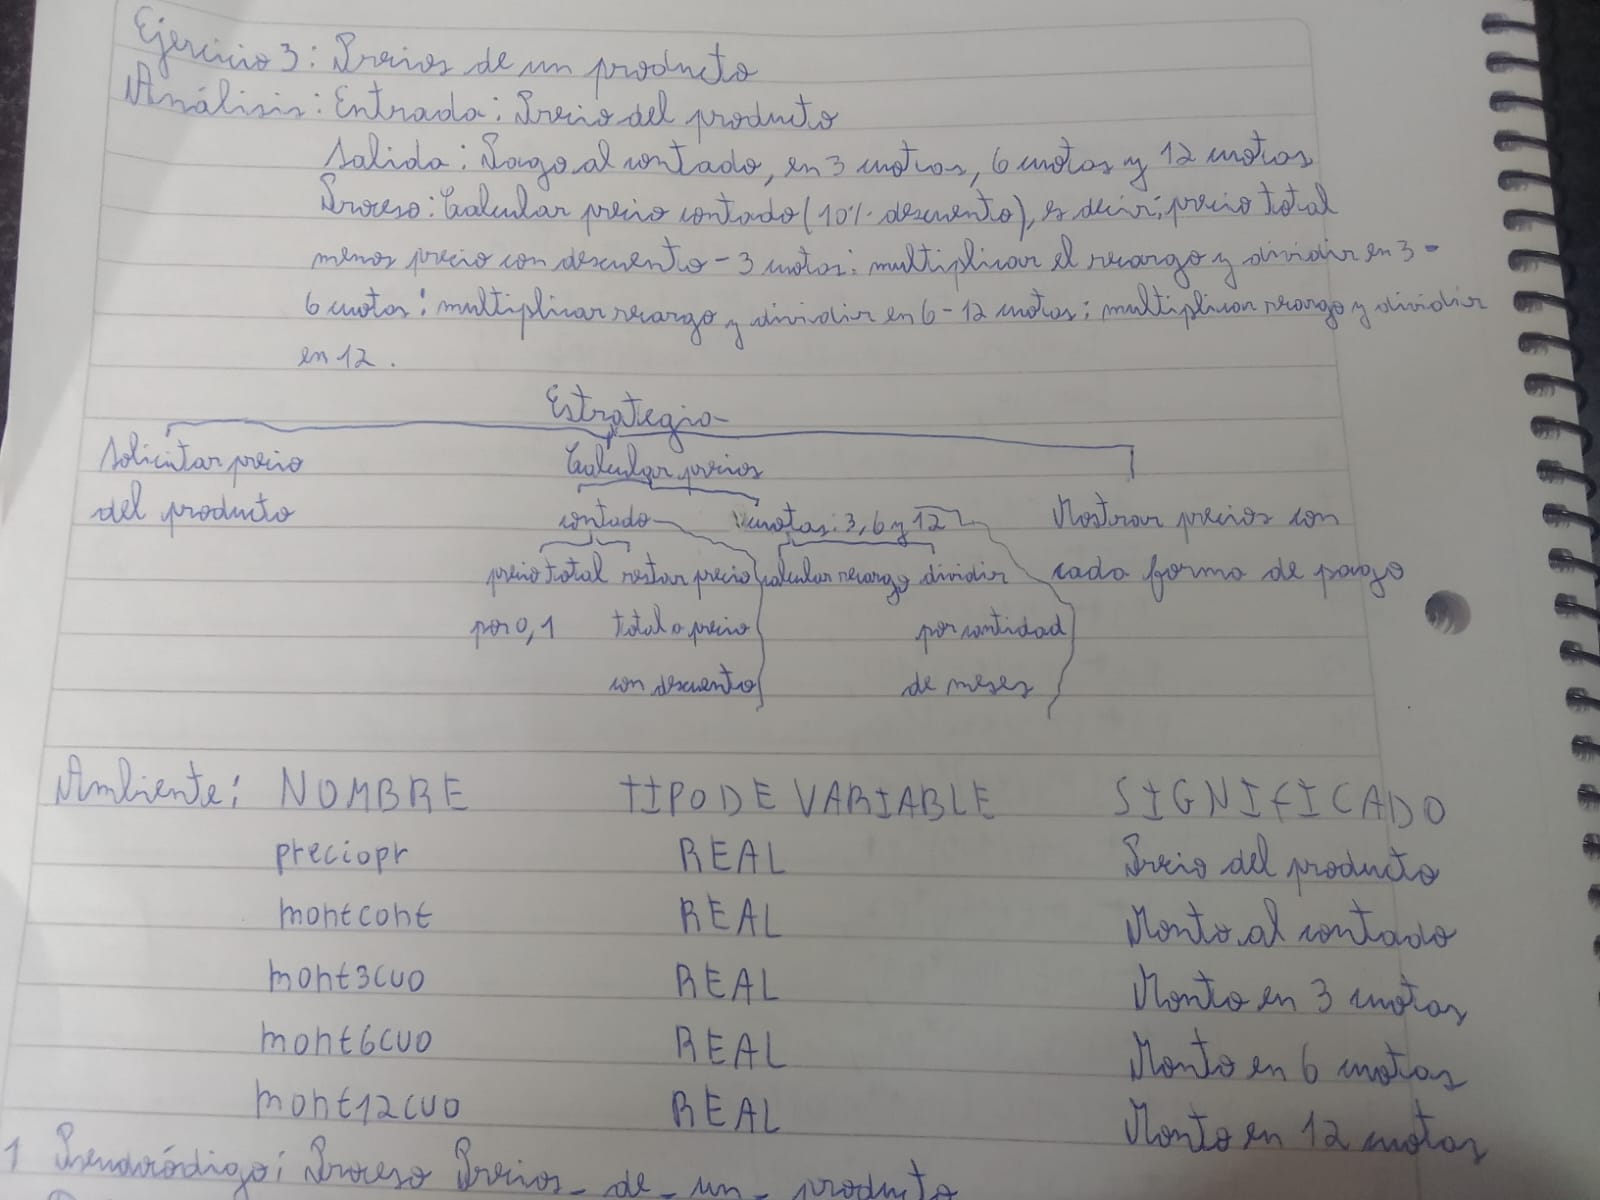 Ejercicio 3: Precios de un producto
Análisis: Entrada: Precio del producto
Salida: Pago al contado, en 3 cuotas, 6 cuotas y 12 cuotas
Proceso: Calcular precio contado (10% descuento), es decir; precio total
menos precio con descuento - 3 cuotas: multiplicar el recargo y dividir en 3 -
6 cuotas: multiplicar recargo y dividir en 6 - 12 cuotas: multiplicar recargo y dividir
en 12.
Estrategia
Solicitar precio
del producto
Calcular precios
contado
cuotas: 3, 6 y 12
precio total
por 0,1
restar precio
total a precio
con descuento
calcular recargo
dividir
por cantidad
de meses
Mostrar precios con
cada forma de pago
Ambiente: NOMBRE TIPO DE VARIABLE SIGNIFICADO
preciopr REAL Precio del producto
montcont REAL Monto al contado
mont3cuo REAL Monto en 3 cuotas
mont6cuo REAL Monto en 6 cuotas
mont12cuo REAL Monto en 12 cuotas
1 Pseudocódigo: Proceso Precios_de_un_producto